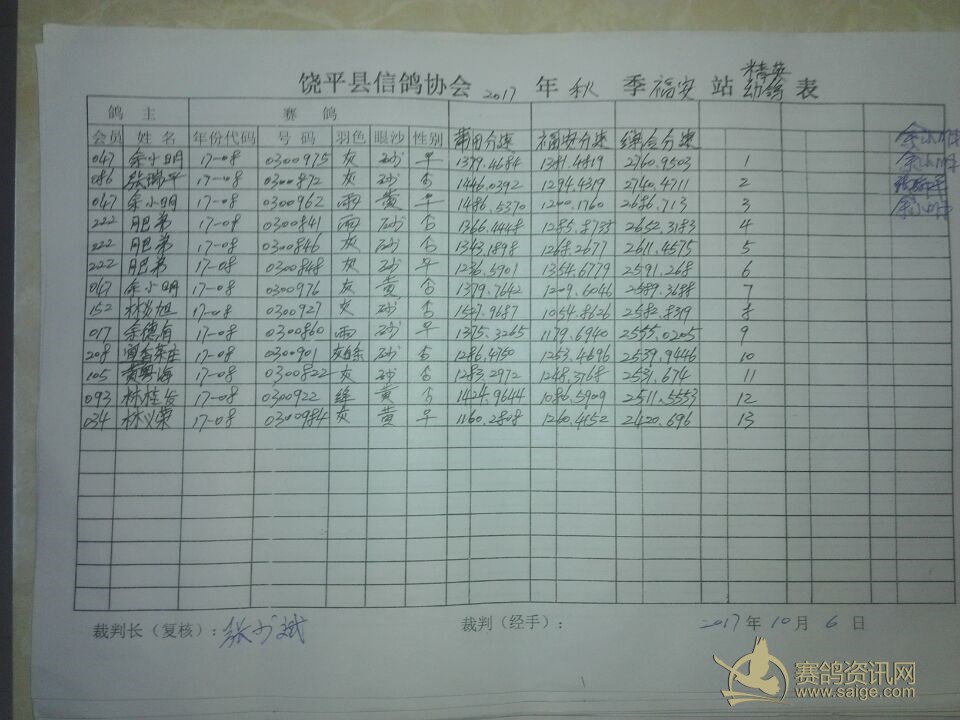 饶平县信鸽协会 2017 年 秋 季 福安 站 精英幼鸽 表
鸽 主 赛 鸽
会员 姓 名 年份代码 号 码 羽色 眼沙 性别 莆田分速 福安分速 综合分速
047 余小明 17-08 0300975 灰 砂 平 1379.4684 1381.4819 2760.9503 1
086 张瑞平 17-08 0300872 灰 砂 否 1446.0392 1294.4319 2740.4711 2
047 余小明 17-08 0300962 雨 黄 平 1486.5370 1200.1760 2686.713 3
222 肥弟 17-08 0300841 雨 砂 否 1366.4448 1285.8735 2652.3183 4
222 肥弟 17-08 0300846 灰 砂 否 1343.1898 1268.2677 2611.4575 5
222 肥弟 17-08 0300848 灰 砂 平 1236.5901 1354.6779 2591.268 6
047 余小明 17-08 0300976 灰 黄 否 1379.7642 1209.6046 2589.3688 7
152 林 旭 17-08 0300927 灰 砂 否 1527.9687 1054.8626 2582.8319 8
017 余德有 17-08 0300860 雨 砂 平 1375.3265 1179.6940 2555.0205 9
208 17-08 0300901 砂 否 1286.4750 1253.4696 2539.9446 10
105 黄粤海 17-08 0300822 灰 砂 否 1283.2972 1248.3768 2531.674 11
093 林桂 17-08 0300922 绛 黄 否 1424.9644 1086.5909 2511.5553 12
034 林义荣 17-08 0300984 灰 黄 平 1160.2808 1260.4152 2420.696 13
余小明
余小明
余小明
裁判长（复核）： 张少斌 裁判（经手）： 2017 年 10 月 6 日
赛鸽资讯网
www.saige.com